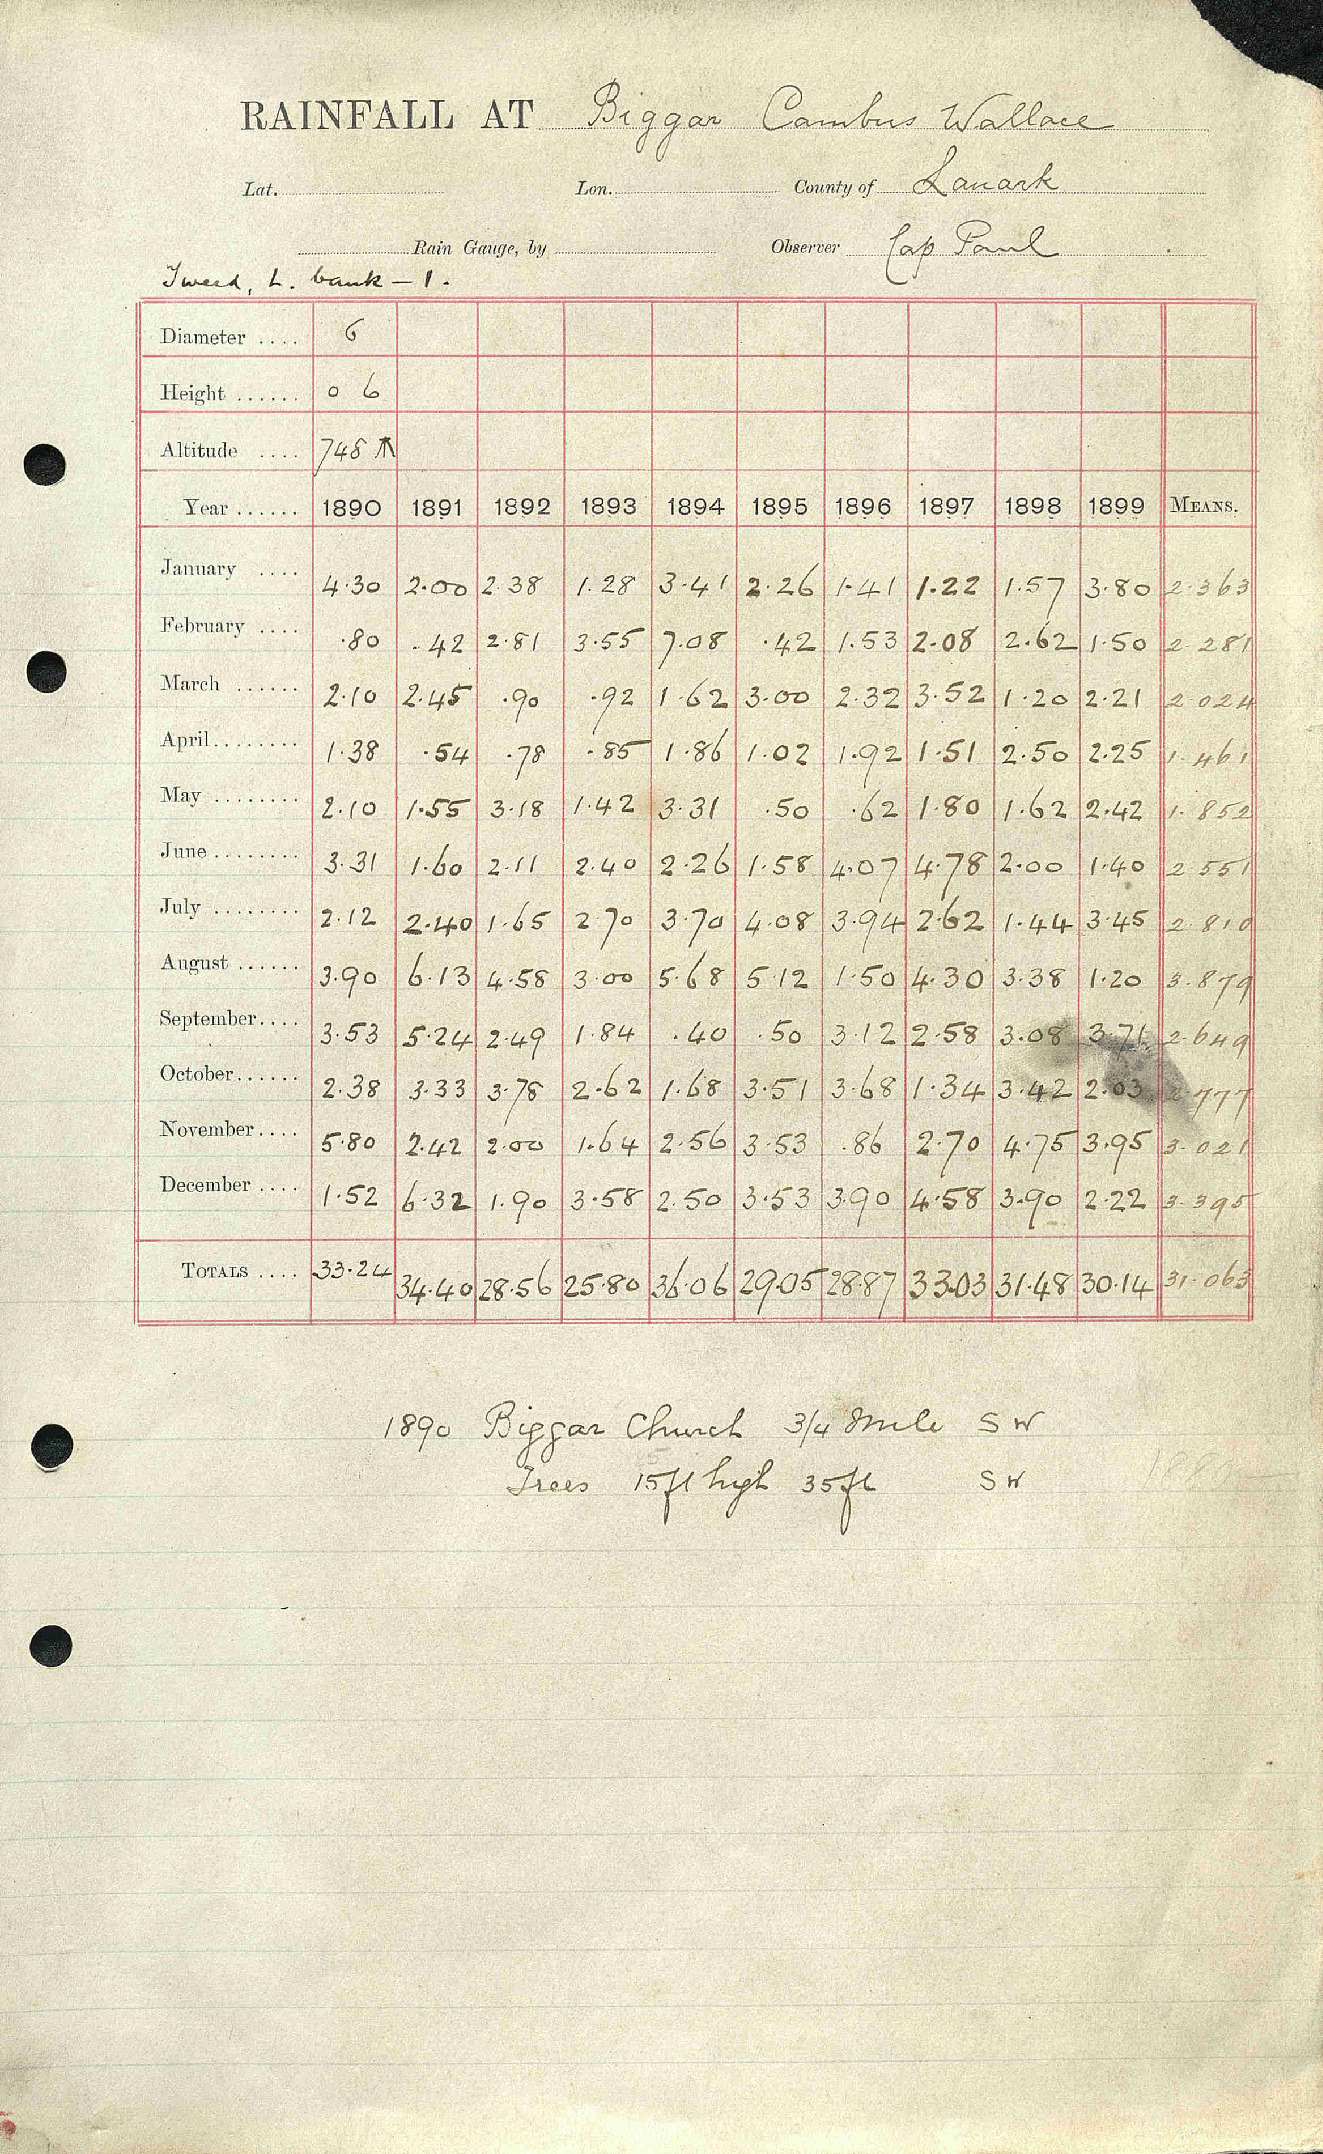 RAINFALL AT Biggar Cambus Wallace
Lat. Lon. County of Lanark
Rain Gauge, by Observer Cap Paul
Tweed, L. bank — 1.
Diameter .... 6
Height ...... 0 6
Altitude .... 748
Year ...... 1890 1891 1892 1893 1894 1895 1896 1897 1898 1899 MEANS.
January .... 4.30 2.00 2.38 1.28 3.41 2.26 1.41 1.22 1.57 3.80 2.363
February .... .80 .42 2.81 3.55 7.08 .42 1.53 2.08 2.62 1.50 2.281
March ...... 2.10 2.45 .90 .92 1.62 3.00 2.32 3.52 1.20 2.21 2.024
April........ 1.38 .54 .78 .85 1.86 1.02 1.92 1.51 2.50 2.25 1.461
May ........ 2.10 1.55 3.18 1.42 3.31 .50 .62 1.80 1.62 2.42 1.852
June ........ 3.31 1.60 2.11 2.40 2.26 1.58 4.07 4.78 2.00 1.40 2.551
July ........ 2.12 2.40 1.65 2.70 3.70 4.08 3.94 2.62 1.44 3.45 2.810
August ...... 3.90 6.13 4.58 3.00 5.68 5.12 1.50 4.30 3.38 1.20 3.879
September.... 3.53 5.24 2.49 1.84 .40 .50 3.12 2.58 3.08 3.71 2.649
October...... 2.38 3.33 3.78 2.62 1.68 3.51 3.68 1.34 3.42 2.03 2.777
November.... 5.80 2.42 2.00 1.64 2.56 3.53 .86 2.70 4.75 3.95 3.021
December .... 1.52 6.32 1.90 3.58 2.50 3.53 3.90 4.58 3.90 2.22 3.395
TOTALS .... 33.24 34.40 28.56 25.80 36.06 29.05 28.87 33.03 31.48 30.14 31.063
1890 Biggar Church 3/4 Mile S W
Trees 15ft high 35ft S W